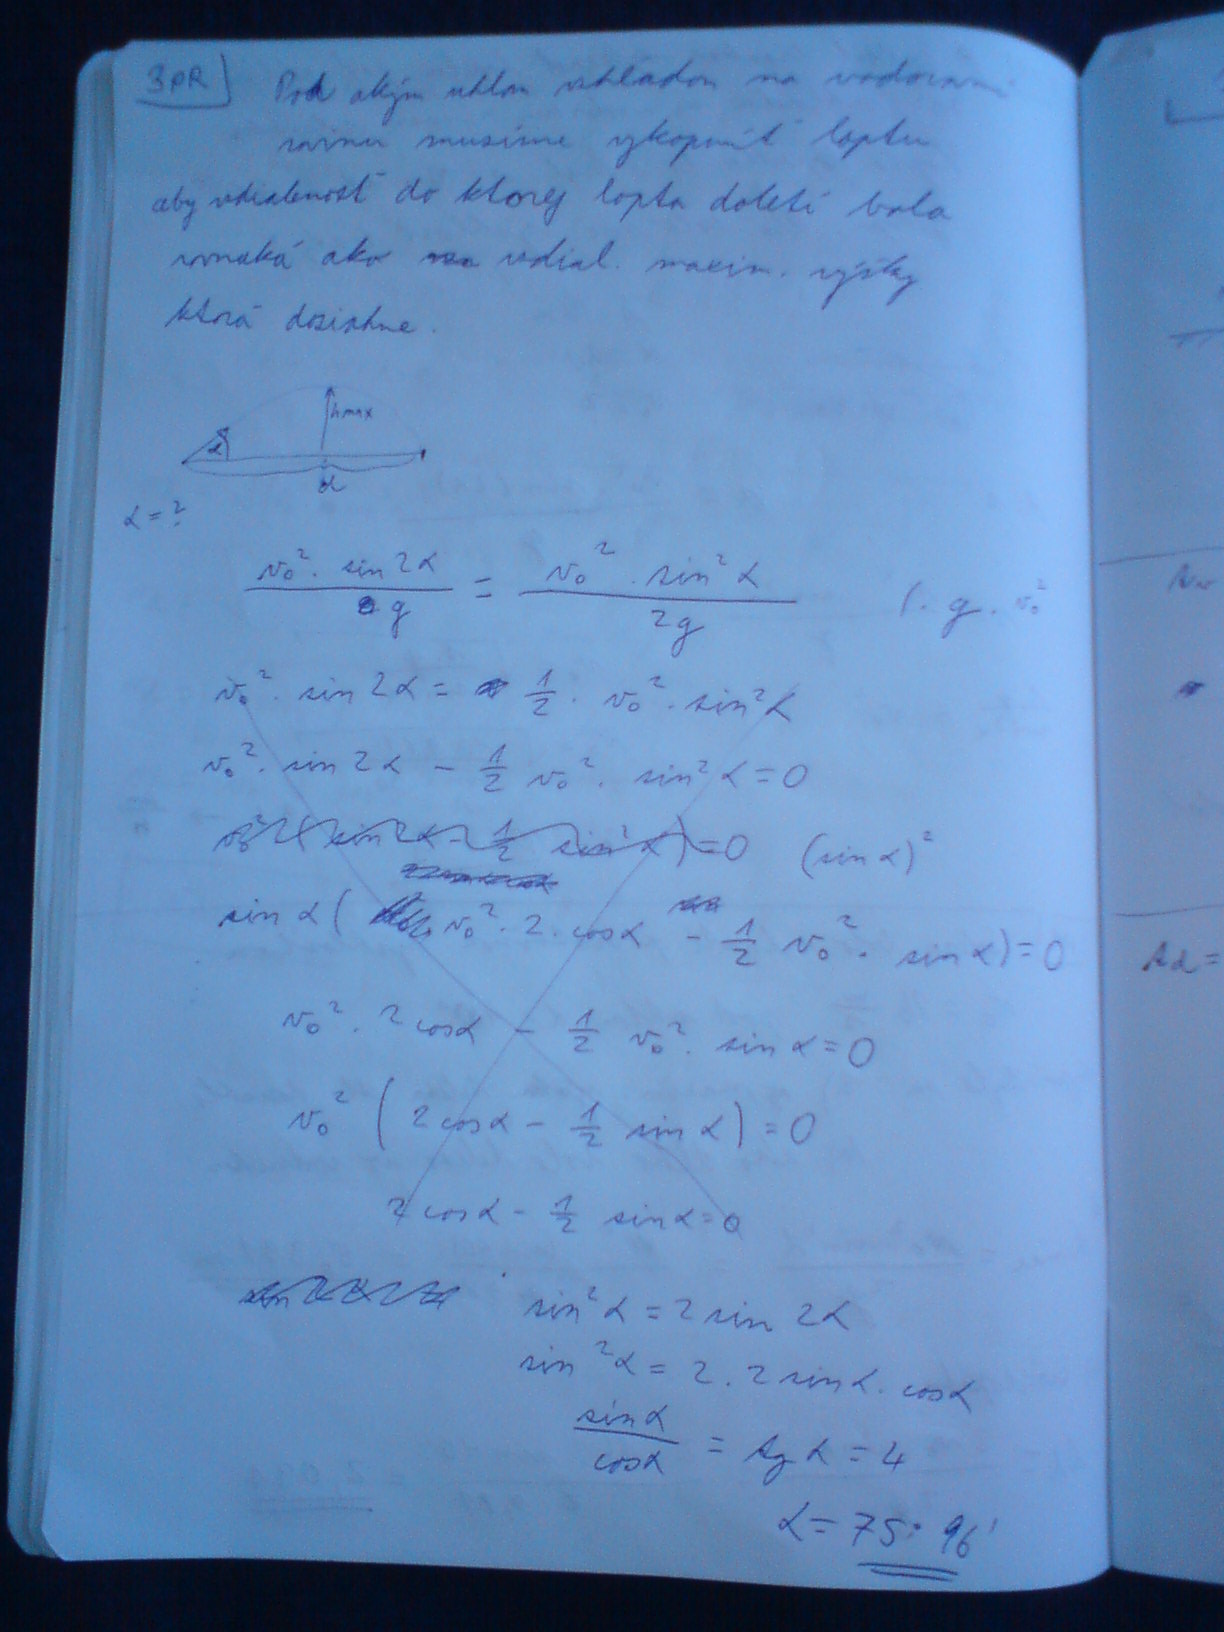 3PR
Pod akým uhlom vzhľadom na vodorovnú
rovinu musíme vykopnúť loptu
aby vzdialenosť do ktorej lopta doletí bola
rovnaká ako vzdial. maxim. výšky
ktorá dosiahne.
hmax
α
d
α = ?
v₀² · sin 2α / g = v₀² · sin² α / 2g /. g . v₀²
v₀² · sin 2α = 1/2 · v₀² · sin² α
v₀² · sin 2α - 1/2 v₀² · sin² α = 0
v₀² ( sin 2α - 1/2 sin² α ) = 0 (sin α)²
sin α ( v₀² · 2 · cos α - 1/2 v₀² · sin α ) = 0
v₀² · 2 cos α - 1/2 v₀² · sin α = 0
v₀² ( 2 cos α - 1/2 sin α ) = 0
2 cos α - 1/2 sin α = 0
sin² α = 2 sin 2α
sin² α = 2 . 2 sin α . cos α
sin α / cos α = tg α = 4
α = 75° 96'